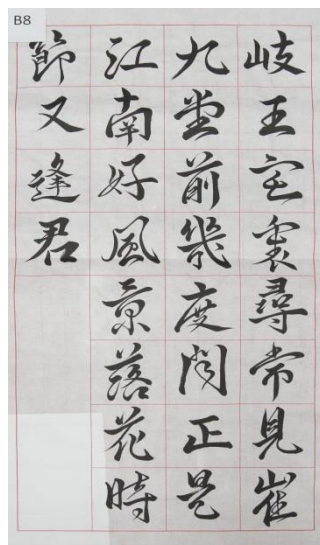 B8
岐王宅裏尋常見崔
九堂前幾度聞正是
江南好風景落花時
節又逢君